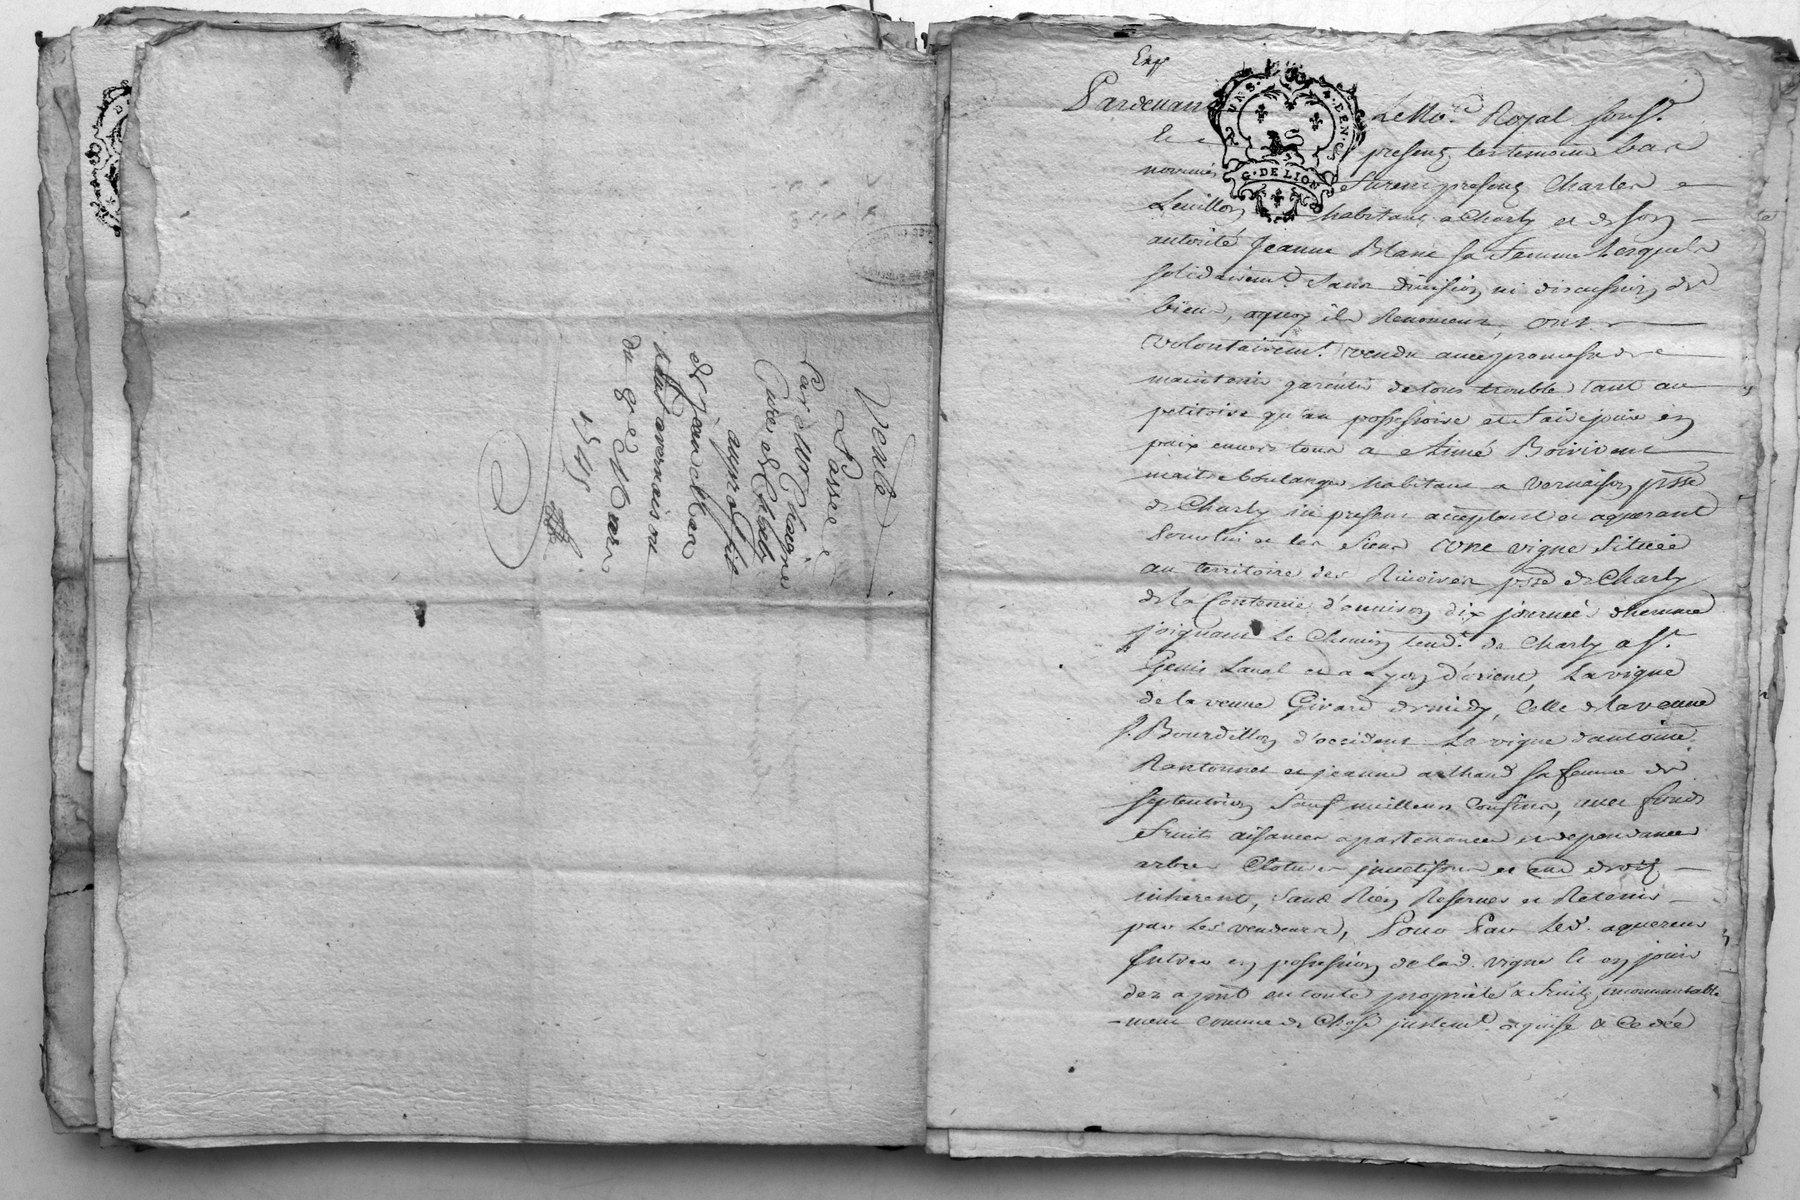 Vente
Passée
Par Sr Chaigne
Curé de Charly
aymé fils
de jean
du 8e Mars
1745
Exp
Pardevant Le Nore Royal sousg.
Et presens les temoins bas
nommés furent presens Charles
habitant a Charly et de son
autorité Jeanne Blanc sa femme Lesquels
solidairemt. sans division ni discussion de
biens, aquoy ils Renoncent, ont
volontairemt. vendu avec promesse de
maintenir garentir de tous trouble tant au
petitoire qu'au possessoire et faire jouir en
paix envers tous a Aimé Boiviens
maitre boulanger habitant a Vernaison psse
de Charly ici present acceptant et aquerant
pour lui et les siens une vigne située
au territoire des psse de Charly
de la Contenüe d'environ dix journée d'homme
joignant Le Chemin tend.t de Charly a St.
Genis Laval et a Lyon d'orient, La vigne
de la veuve Girard de midy, Celle de la veuve
J. Bourdillon d'occident La vigne d'antoine
et jeanne sa femme de
septentrion sauf meilleurs Confins, avec fonds
fruits aisances apartenances et dependances
arbres Clotures et aud droit
inherent, sans Rien Reserver et Retenir
par les vendeurs, Pour Par led. aquereur
Entrer en possession de lad. vigne et en jouir
dez a pnt en toute proprieté & fruits incommutable
-ment comme de Chose justemt. aquise & Cedée
G. DE LION